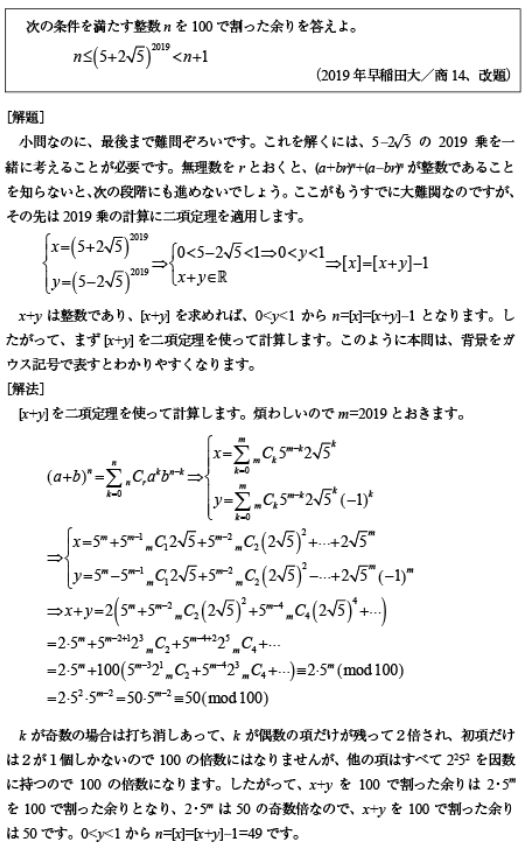 次の条件を満たす整数 n を 100 で割った余りを答えよ。
n≤(5+2√5)^2019<n+1
（2019 年早稲田大／商 14、改題）
[解題]
小問なのに、最後まで難問ぞろいです。これを解くには、5–2√5 の 2019 乗を一
緒に考えることが必要です。無理数を r とおくと、(a+br)ⁿ+(a–br)ⁿ が整数であること
を知らないと、次の段階にも進めないでしょう。ここがもうすでに大難関なのですが、
その先は 2019 乗の計算に二項定理を適用します。
{x=(5+2√5)^2019 y=(5−2√5)^2019 ⇒ {0<5−2√5<1⇒0<y<1 x+y∈ℝ ⇒[x]=[x+y]−1
x+y は整数であり、[x+y] を求めれば、0<y<1 から n=[x]=[x+y]–1 となります。し
たがって、まず [x+y] を二項定理を使って計算します。このように本問は、背景をガ
ウス記号で表すとわかりやすくなります。
[解法]
[x+y]を二項定理を使って計算します。煩わしいので m=2019 とおきます。
(a+b)^n=∑_{k=0}^{n} nCr a^k b^{n−k} ⇒ {x=∑_{k=0}^{m} mCk 5^{m−k} 2√5^k y=∑_{k=0}^{m} mCk 5^{m−k} 2√5^k (−1)^k
⇒{x=5^m+5^{m−1} mC1 2√5+5^{m−2} mC2(2√5)^2+⋯+2√5^m
y=5^m−5^{m−1} mC1 2√5+5^{m−2} mC2(2√5)^2−⋯+2√5^m(−1)^m
⇒x+y=2(5^m+5^{m−2} mC2(2√5)^2+5^{m−4} mC4(2√5)^4+⋯)
=2·5^m+5^{m−2+1}2^3 mC2+5^{m−4+2}2^5 mC4+⋯
=2·5^m+100(5^{m−3}2^1 mC2+5^{m−4}2^3 mC4+⋯)≡2·5^m(mod100)
=2·5^2·5^{m−2}=50·5^{m−2}≡50(mod100)
k が奇数の場合は打ち消しあって、k が偶数の項だけが残って 2 倍され、初項だけ
は 2 が 1 個しかないので 100 の倍数にはなりませんが、他の項はすべて 2²5² を因数
に持つので 100 の倍数になります。したがって、x+y を 100 で割った余りは 2・5ᵐ
を 100 で割った余りとなり、2・5ᵐ は 50 の奇数倍なので、x+y を 100 で割った余り
は 50 です。0<y<1 から n=[x]=[x+y]–1=49 です。